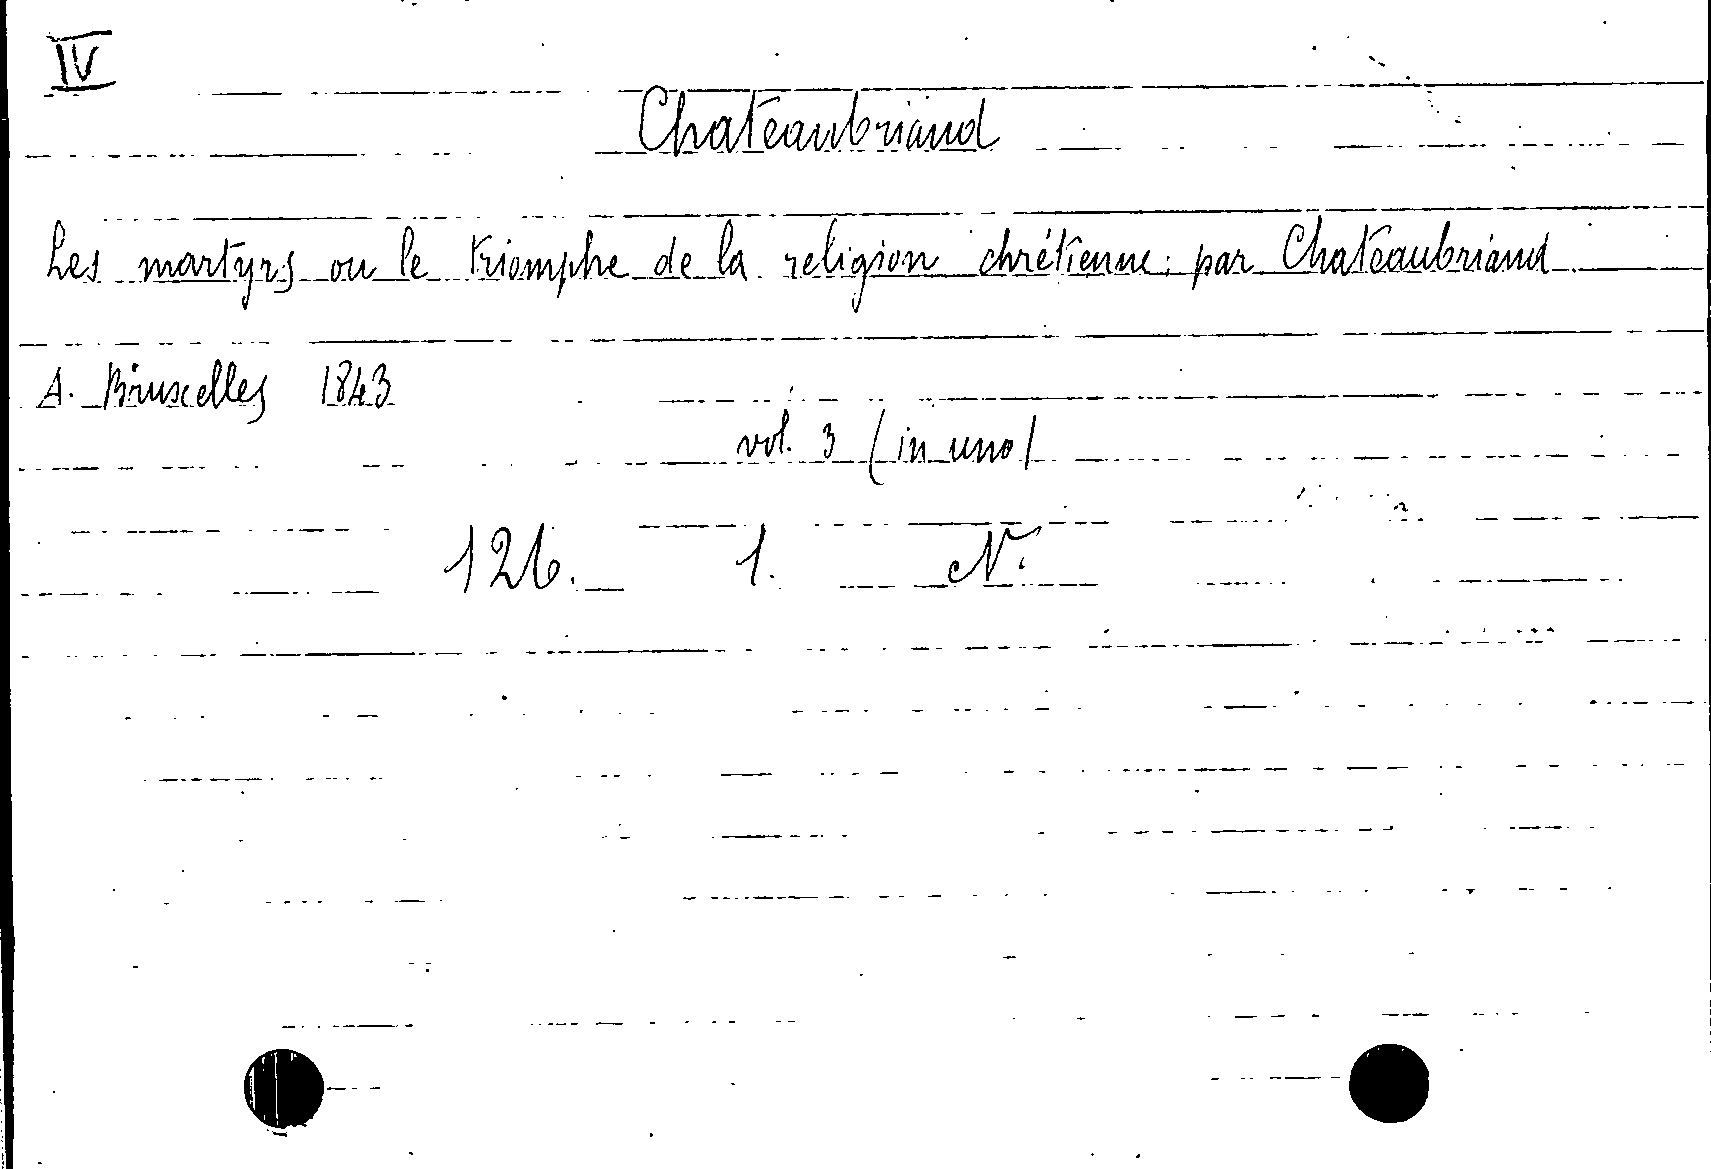 IV
Chateaubriand
Les martyrs ou le triomphe de la religion chrétienne: par Chateaubriand
A. Bruxelles 1843
vol. 3 (in uno)
126. 1. N.